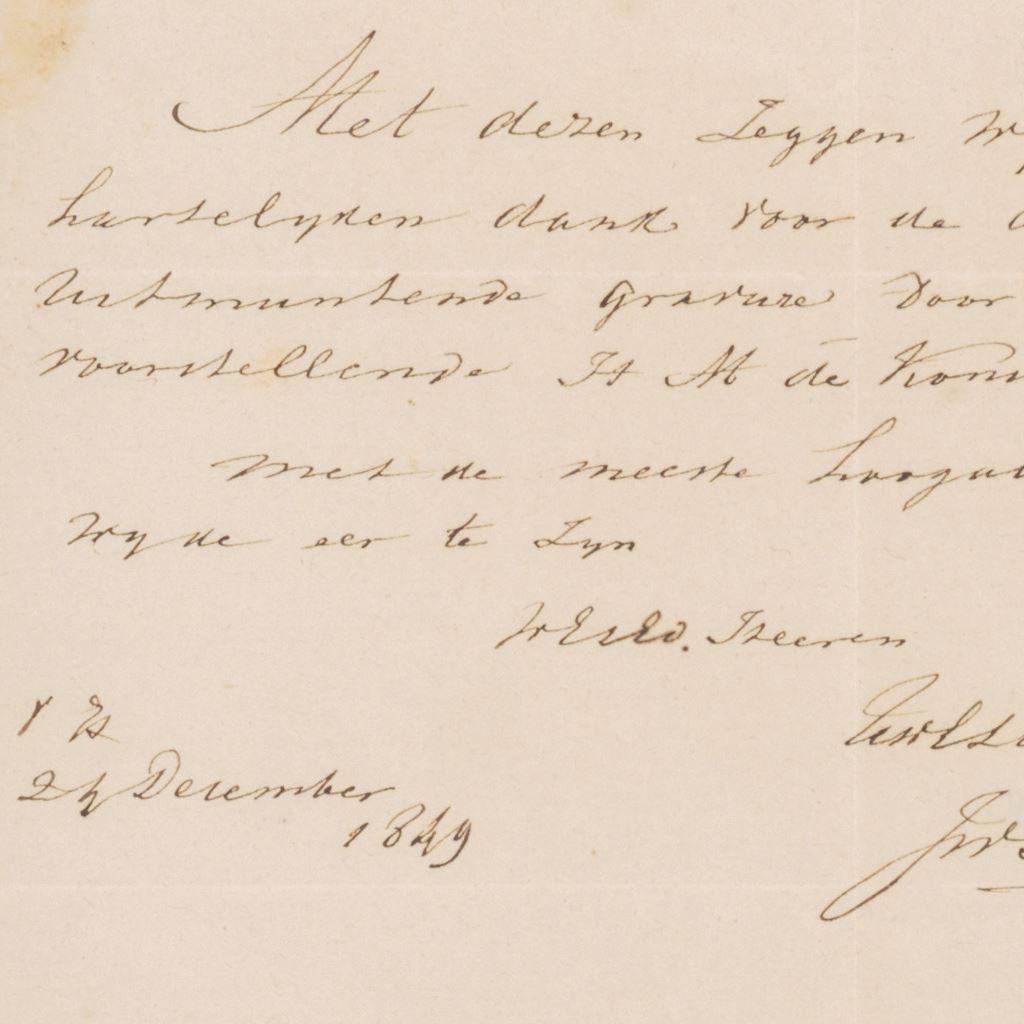 Met dezen Zeggen
hartelyken dank voor de
Uitmuntende gravure door
voorstellende H M de
met de meeste
wy de eer te Zyn
WEdEd. Heeren
24 December
1849